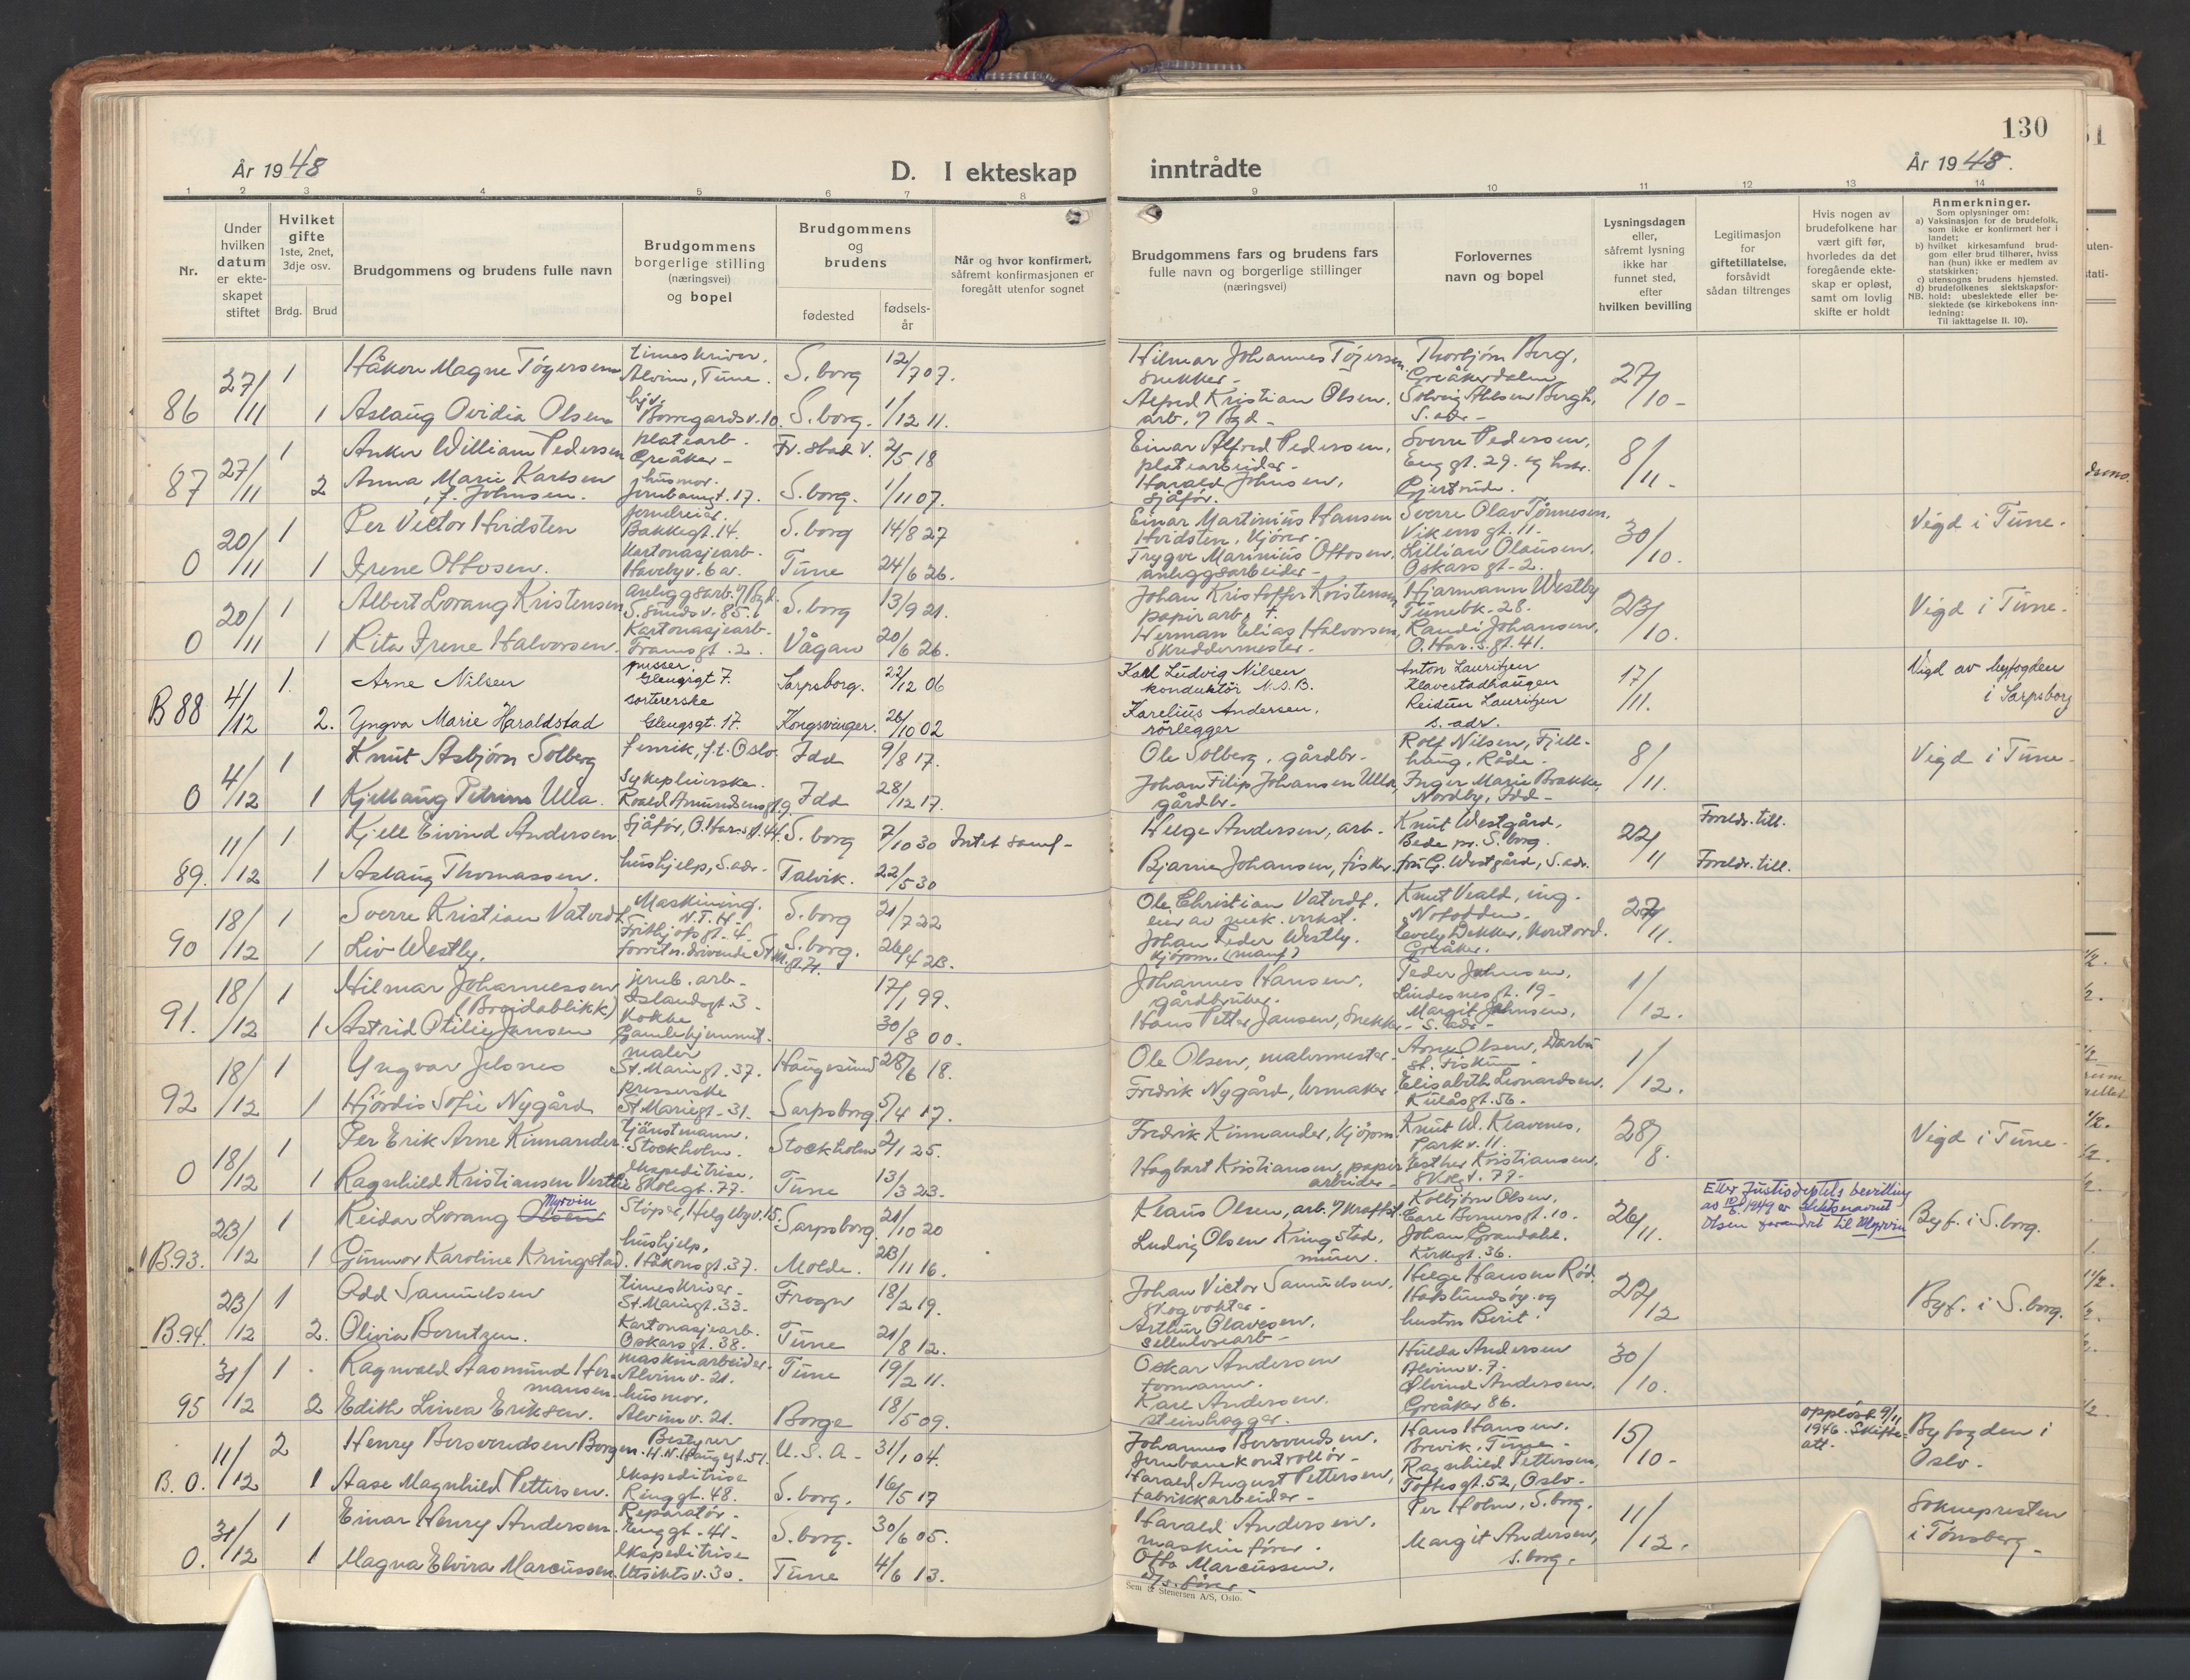 130
År 1948
D. I ekteskap
inntrådte
År 1948.
1 2 3 4 5 6 7 8
9 10 11 12 13 14
Nr.
Under
hvilken
datum
er ekte-
skapet
stiftet
Hvilket
gifte
1ste, 2net,
3dje osv.
Brdg. Brud
Brudgommens og brudens fulle navn
Brudgommens
borgerlige stilling
(næringsvei)
og bopel
Brudgommens
og
brudens
fødested
fødsels-
år
Når og hvor konfirmert,
såfremt konfirmasjonen er
foregått utenfor sognet
Brudgommens fars og brudens fars
fulle navn og borgerlige stillinger
(næringsvei)
Forlovernes
navn og bopel
Lysningsdagen
eller,
såfremt lysning
ikke har
funnet sted,
efter
hvilken bevilling
Legitimasjon
for
giftetillatelse,
forsåvidt
sådan tiltrenges
Hvis nogen av
brudefolkene har
vært gift før,
hvorledes da det
foregående ekte-
skap er opløst,
samt om lovlig
skifte er holdt
Anmerkninger.
Som oplysninger om:
a) Vaksinasjon for de brudefolk,
som ikke er konfirmert her i
landet;
b) hvilket kirkesamfund brud-
gom eller brud tilhører, hviss
han (hun) ikke er medlem av
statskirken;
c) utensogns brudens hjemsted.
d) brudefolkenes slektskapsfor-
NB. hold: ubeslektede eller be-
slektede (se kirkebokens inn-
ledning:
Til iakttagelse II. 10).
27/11 1 Håkon Magne Tøgersen timeskriver, Alvim, Tune. S. borg 12/7 07. Hilmar Johannes Tøgersen, snekker - Thorbjørn Berg, Greåkerdalen 27/10 -
86 1 Aslaug Ovidia Olsen hjv. Borregardsv. 10. S. borg. 1/12 11. Alfred Kristian Olsen, arb. Solveig Bergh, S. adr. -
27/11 1 Anker William Pedersen platearb. Greåker - 2/5 18 Einar Alfred Pedersen, platearbeider - Sverre Pedersen, Enggt. 29. 8/11 -
87 2 Anna Marie Karlsen, f. Johnsen. husmor. 17. S. borg. 1/11 07. Harald Johnsen, sjåfør.
20/11 1 Per Victor Hvidsten Bakkegt. 14. S. borg 14/8 27 Einar Martinius Hansen Hvidsten, kjører. Sverre Olav Tønnesen, Vikens gt. 11. 30/10. Vigd i Tune.
0 1 Irene Ottosen. Kartonasjearb. Havebyv. 6a. Tune 24/6 26. Trygve Marinius Ottosen, anleggsarbeider - Lillian Olausen, Oskars gt. 2.
20/11 1 Albert Lorang Kristensen anleggsarb. S. sundsv. 85. S. borg 13/9 21. Johan Kristoffer Kristensen papirarb. †. Hjarmann Westby Tunebk. 28. 23/10. Vigd i Tune.
0 1 Rita Irene Halvorsen. Kartonasjearb. Framsgt. 2. Vågan 20/6 26. Herman Elias Halvorsen, Skreddermester. Randi Johansen, O. Har. s. gt. 41.
4/12 1. Arne Nilsen pusser. Glengsgt 7. Sarpsborg. 22/12 06 Karl Ludvig Nilsen konduktør N.S.B. Anton Lauritzen Klavestadhaugen 17/11. Vigd av byfogden i Sarpsborg
B 88 2. Yngva Marie Haraldstad sortererske Glengsgt. 17. Kongsvinger. 26/10 02 Karelius Andersen, rørlegger Reidun Lauritzen s. adr.
4/12 1 Knut Asbjørn Solberg fenrik, f.t. Oslo. Idd 9/8 17. Ole Solberg, gårdbr. Rolf Nilsen, Fjellhaug, Råde. 8/11. Vigd i Tune.
0 1 Kjellaug Petrine Ulla. Sykepleierske. Roald Amundsens gt. 9. Idd 28/12 17. Johan Filip Johansen Ulla, gårdbr. Inger Marie Brakke, Nordby, Idd -
11/12 1 Kjell Eivind Andersen Sjåfør, O. Har. s. gt. 44. S. borg 7/10 30 Intet samf - Helge Andersen, arb. Knut Westgård, S. borg. 22/11 Foreldr. till.
89. 1 Aslaug Thomassen. hushjelp, S. adr. Talvik. 22/5 30 Bjarne Johansen, fisker. Westgård, S. adr. Foreldr. till.
18/12 1 Sverre Kristian Vatvedt Maskining. N.T.H. Frithjofsgt. 4. S. borg 21/7 22 Ole Christian Vatvedt. eier av mek. verkst. Knut Veald, ing. Notodden. 27/11.
90 1 Liv Westby. forretn. drivende S. borg. 26/4 23. Johan Peder Westby. kjøpm. (manuf) Evely Dekker, kontord. Greåker.
18/12 1 Hilmar Johannessen (Breidablikk) jernb. arb. Islandsgt. 3. 17/1 99. Johannes Hansen, gårdbruker. Peder Johnsen, Lindesnesgt. 19 - 1/12.
91. 1 Astrid Otilie Jansen Kokke Gamlehjemmet. 30/8 00. Hans Petter Jansen, Snekker - Margit Johnsen, S. adr -
18/12 1 Yngvar Jelsnes maler St. Mariegt. 37. Haugesund 28/6 18. Ole Olsen, malermester. Arne Olsen, Darbu st. Fiskum - 1/12.
92 1 Hjørdis Sofie Nygård presserske St Mariegt. 31. Sarpsborg 5/4 17. Fredrik Nygård, urmaker. Elisabeth Leonardsen. Kulåsgt. 56.
18/12 1 Per Erik Arne Kinnander tjänstmann. Stockholm. Stockholm 2/1 25. Fredrik Kinnander, kjøpm. Knut W. Klavenes, Parkv. 11. 28/8. Vigd i Tune.
0 1 Ragnhild Kristiansen Vestlie Ekspeditrise, Skolegt. 77. Tune 13/3 23. Hagbart Kristiansen, papirarbeider - Esther Kristiansen, Skolegt. 77.
23/12 1 Reidar Lorang Olsen Myrvin Støper, Helgebyv. 15. Sarpsborg 21/10 20 Klaus Olsen, arb. Kraftst. Kolbjørn Olsen, Carl Borners gt. 10. 26/11. Etter Justisdeptets bevilling av 10/6 1949 er slektsnavnet Olsen forandret til Myrvin Byf. i S. borg.
B. 93. 1 Gunnor Karoline Kringstad. hushjelp, Håkonsgt. 37. Molde. 23/11 16. Ludvig Olsen Kringstad, murer. Johan Grandahl. Kirkegt. 36.
23/12 1 Odd Samuelsen timeskriver - St. Mariegt. 33. Frogn 18/2 19. Johan Victor Samuelsen, Skogvokter - Helge Hansen Rød, Hafslundsøy og hustru Berit. 22/12 Byf. i S. borg.
B. 94. 2. Olivia Berntzen. Kartonasjearb. Oskars gt. 38. Tune 21/8 12. Arthur Olavesen, Cellulosearb -
31/12 1 Ragnvald Aasmund Hermansen maskinarbeider. Alvimv. 21. Tune 19/2 11. Oskar Andersen formann. Hulda Andersen Alvimv. 7. 30/10.
95 2 Edith Linea Eriksen. husmor, Alvimv. 21. Borge 18/5 09. Karl Andersen. steinhogger. Øivind Andersen. Greåker 86.
11/12 2 Henry Bersvendsen Borgen. Bestyrer H. N. Haugesgt. 51. U.S.A. 31/1 04. Johannes Bersvendsen, Jernbanekontrollør - Hans Hansen, Brevik, Tune - 15/10 - oppløst 9/11 1946. Skifte att. Byfogden i Oslo.
B. 0. 1 Aase Magnhild Pettersen. Ekspeditrise Ringgt. 48. S. borg. 16/5 17 Harald August Pettersen, fabrikkarbeider - Ragnhild Pettersen, Toftesgt. 52, Oslo -
31/12 1 Einar Henry Andersen. Reparatør - Enggt. 41 - S. borg. 30/6 05. Harald Andersen, maskinfører. Per Holm, S. borg. 11/12. Soknepresten i Tønsberg -
0. 1 Magna Elvira Marcussen. Ekspeditrise Utsiktsv. 30. Tune 4/6 13. Otto Marcussen, Margit Andersen, S. borg.
Sem & Stenersen A/S, Oslo.